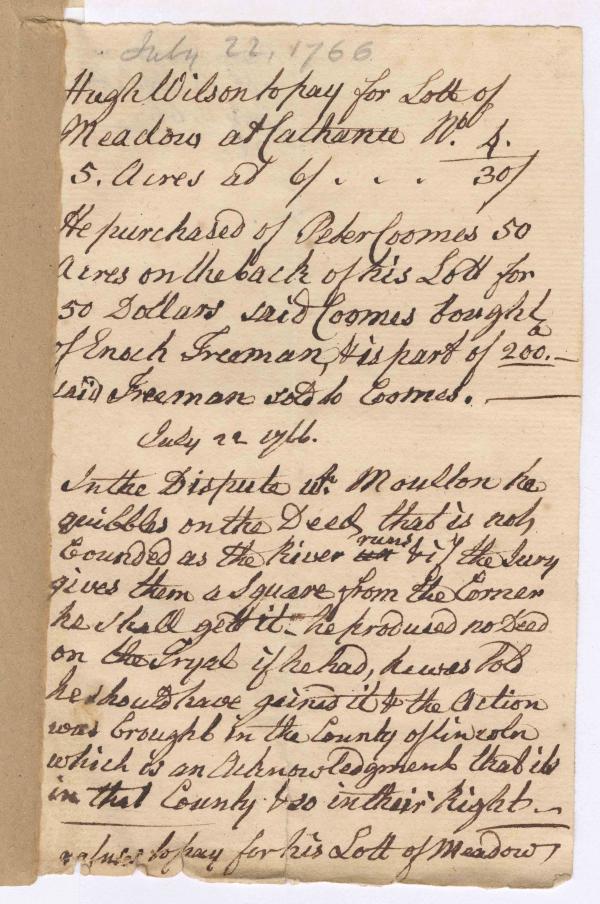 July 22, 1766
Hugh Wilson to pay for Lott of
Meadow at Cathance No. 4.
5. Acres at 6/ . . . 30/
He purchased of Peter Coomes 50
Acres on the back of his Lott for
50 Dollars said Coomes bought
of Enoch Freeman, His part of 200 a.—
said Freeman sold to Coomes. —
July 22 1766.
In the Dispute wth. Moulton he
quibbles on the Deed, that is not
bounded as the River runs & if the Jury
gives them a Square from the Corner
he shall gett it - he produced no Deed
on the Tryal if he had, he was told
he should have gained it & the Action
was brought in the County of Lincoln
which is an Acknowledgment that its
in that County & so in their Right. —
refuses to pay for his Lott of Meadow